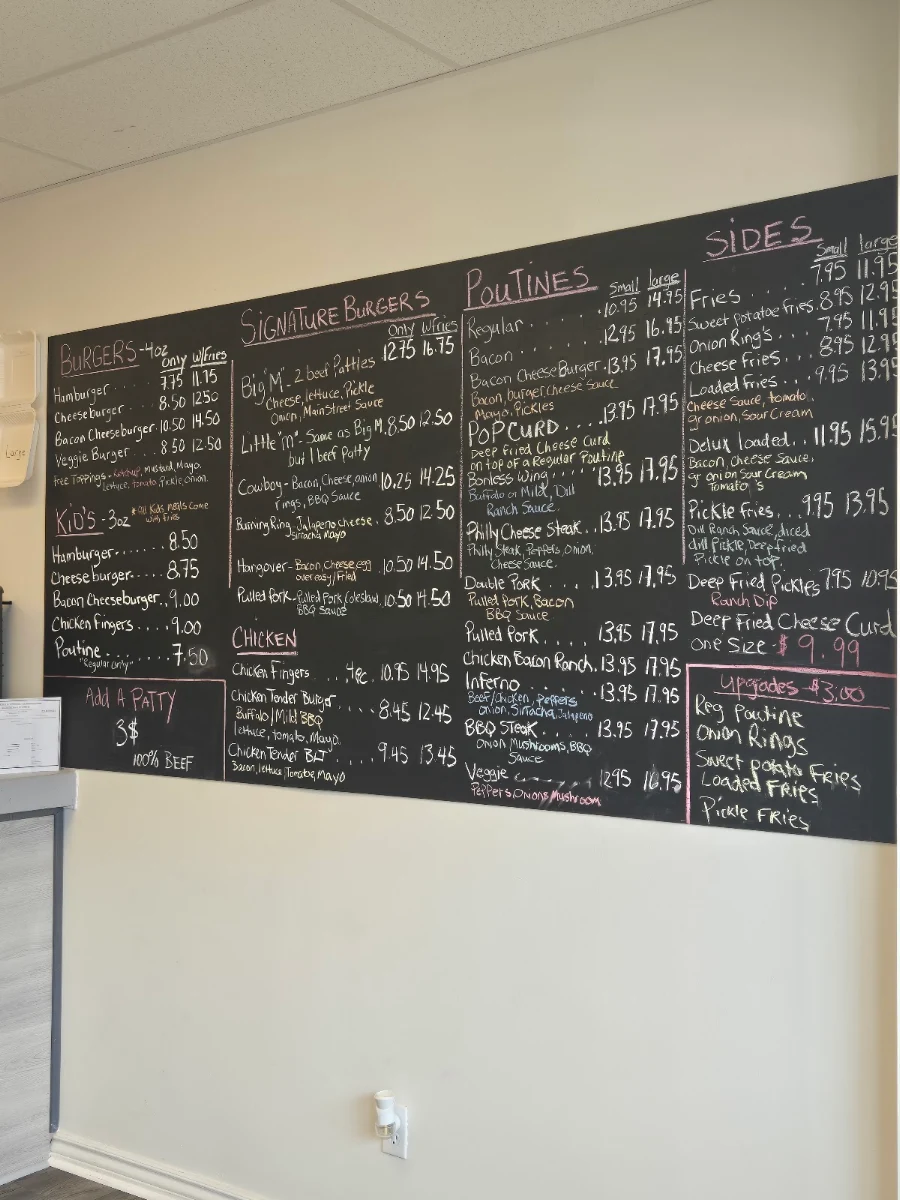 BURGERS - 4oz
Only w/Fries
Hamburger .... 7.75 11.75
Cheeseburger ... 8.50 12.50
Bacon Cheeseburger. 10.50 14.50
Veggie Burger ... 8.50 12.50
free Toppings - Ketchup, Mustard, Mayo.
Lettuce, tomato, Pickle, onion.
KiD'S - 3oz
* all Kids meals Come
with fries
Hamburger....... 8.50
Cheeseburger..... 8.75
Bacon Cheeseburger.. 9.00
Chicken Fingers .... 9.00
Poutine ........ 7.50
"Regular Only"
Add A PATTY
3$
100% BEEF
SIGNATURE BURGERS
Only w/Fries
12.75 16.75
Big "M" - 2 beef Patties
Cheese, lettuce, Pickle
Onion, Main Street Sauce
Little "m" - Same as Big M. 8.50 12.50
but 1 beef Patty
Cowboy - Bacon, Cheese, onion 10.25 14.25
rings, BBQ Sauce
Burning Ring. Jalapeno cheese. 8.50 12.50
Sirracha Mayo
Hangover - Bacon, Cheese, egg 10.50 14.50
over easy / Fried
Pulled Pork - Pulled Pork, Coleslaw, 10.50 14.50
BBQ Sauce
CHICKEN
Chicken Fingers .... 10.95 14.95
Chicken Tender Burger .... 8.45 12.45
Buffalo / Mild BBQ
lettuce, tomato, Mayo.
Chicken Tender BLT .... 9.45 13.45
bacon, lettuce Tomato, Mayo
POUTINES
Small large
Regular ...... 10.95 14.95
Bacon ..... 12.95 16.95
Bacon Cheese Burger. 13.95 17.95
Bacon, burger, cheese Sauce
Mayo, Pickles
POPCURD .... 13.95 17.95
Deep Fried Cheese Curd
on top of a Regular Poutine
Bonless Wing .... 13.95 17.95
Buffalo or Mild, Dill
Ranch Sauce.
Philly Cheese Steak.. 13.95 17.95
Philly Steak, Peppers, Onion,
Cheese Sauce.
Double Pork .... 13.95 17.95
Pulled Pork, Bacon
BBQ Sauce
Pulled Pork..... 13.95 17.95
Chicken Bacon Ranch. 13.95 17.95
Inferno .... 13.95 17.95
Beef/Chicken, peppers
onion, Sirracha, Jalapeno
BBQ Steak .... 13.95 17.95
Onion Mushrooms, BBQ
Sauce
Veggie ...... 12.95 16.95
Peppers, Onions, Mushroom
SiDES
Small large
Fries ..... 7.95 11.95
Sweet potatoe Fries. 8.95 12.95
Onion Ring's .. 7.95 11.95
Cheese Fries... 8.95 12.95
Loaded Fries... 9.95 13.95
Cheese Sauce, tomato,
gr onion, Sour Cream
Delux loaded.. 11.95 15.95
Bacon, Cheese Sauce,
gr onion Sour Cream
Tomato's
Pickle Fries.... 9.95 13.95
Dill Ranch Sauce, diced
dill Pickle, Deep fried
Pickle on top.
Deep Fried Pickles 7.95 10.95
Ranch Dip
Deep Fried Cheese Curd
one Size - $ 9.99
Upgrades - $3.00
Reg Poutine
Onion Rings
Sweet potato Fries
Loaded Fries
Pickle Fries
Large